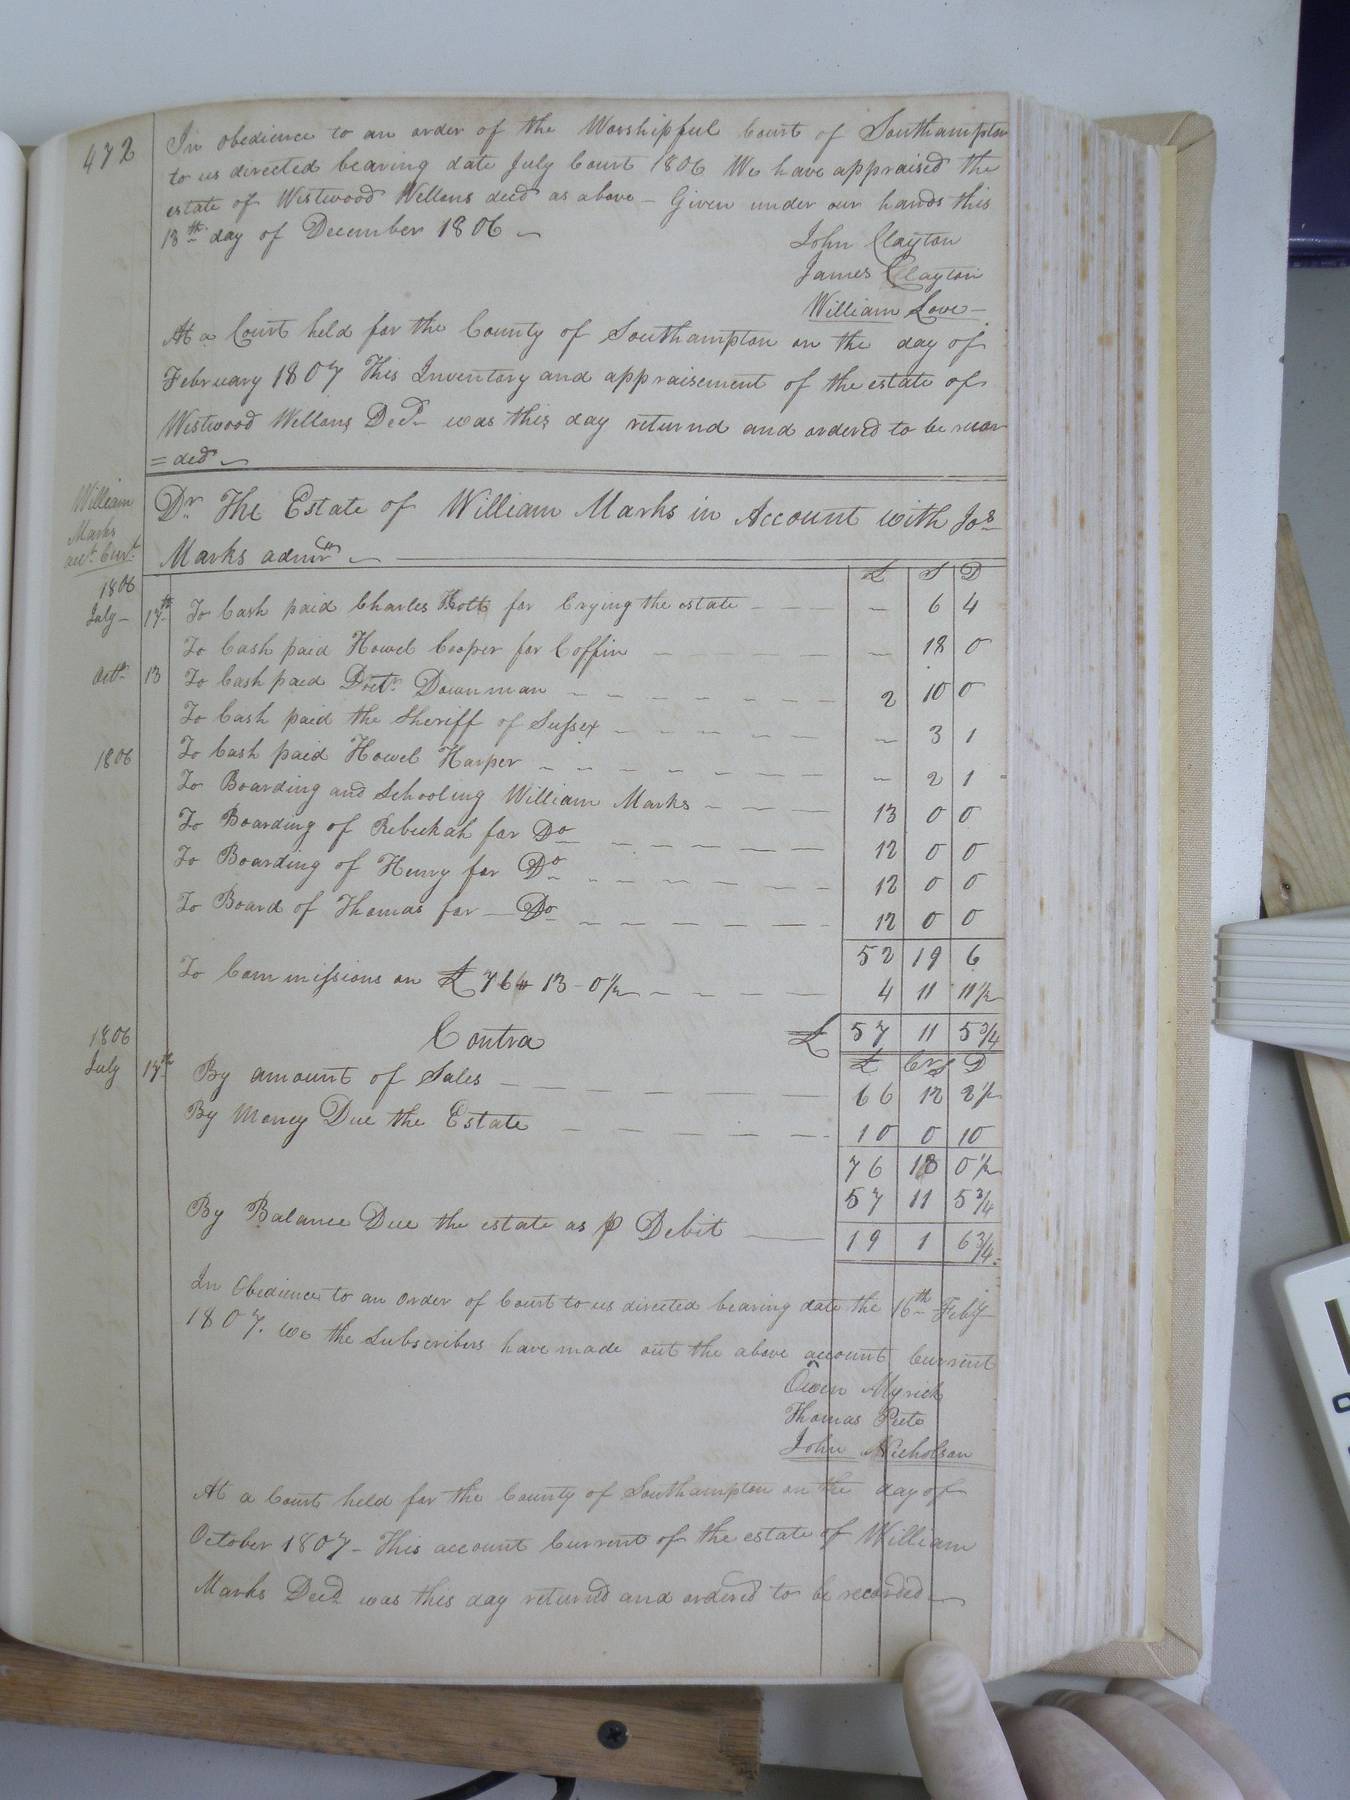 472
In obedience to an order of the Worshipful Court of Southampton
to us directed bearing date July Court 1806 We have appraised the
estate of Westwood Wellons decd as above - Given under our hands this
13th day of December 1806
John Clayton
James Clayton
William Love
At a Court held for the County of Southampton on the day of
February 1807 This Inventory and appraisement of the estate of
Westwood Wellons Decd was this day returnd and ordered to be recor
=ded
William
Marks
acct. Curt.
Dr The Estate of William Marks in Account with Jos
Marks admr
£ S D
1806
July - 17th To Cash paid Charles Holt for Crying the estate - 6 4
To Cash paid Howel Cooper for Coffin - 18 0
Octr 13 To Cash paid Doctr Downman 2 10 0
To Cash paid the Sheriff of Sussex - 3 1
1806 To Cash paid Howel Harper - 2 1
To Boarding and Schooling William Marks 13 0 0
To Boarding of Rebeckah for Do 12 0 0
To Boarding of Henry for Do 12 0 0
To Board of Thomas for - Do 12 0 0
52 19 6
To Commissions on £ 76 13 - 0½ 4 11 11½
1806 Contra £ 57 11 5¾
£ Cr S D
July 17th By amount of Sales 66 12 2½
By Money Due the Estate 10 0 10
76 13 0½
57 11 5¾
By Balance Due the estate as p Debit 19 1 6¾
In Obedience to an order of Court to us directed bearing date the 16th Feby
1807. we the Subscribers have made out the above account Current
Owen Myrick
Thomas Pete
John Nicholson
At a Court held for the County of Southampton on the day of
October 1807 - This account Current of the estate of William
Marks Decd was this day returnd and ordered to be recorded